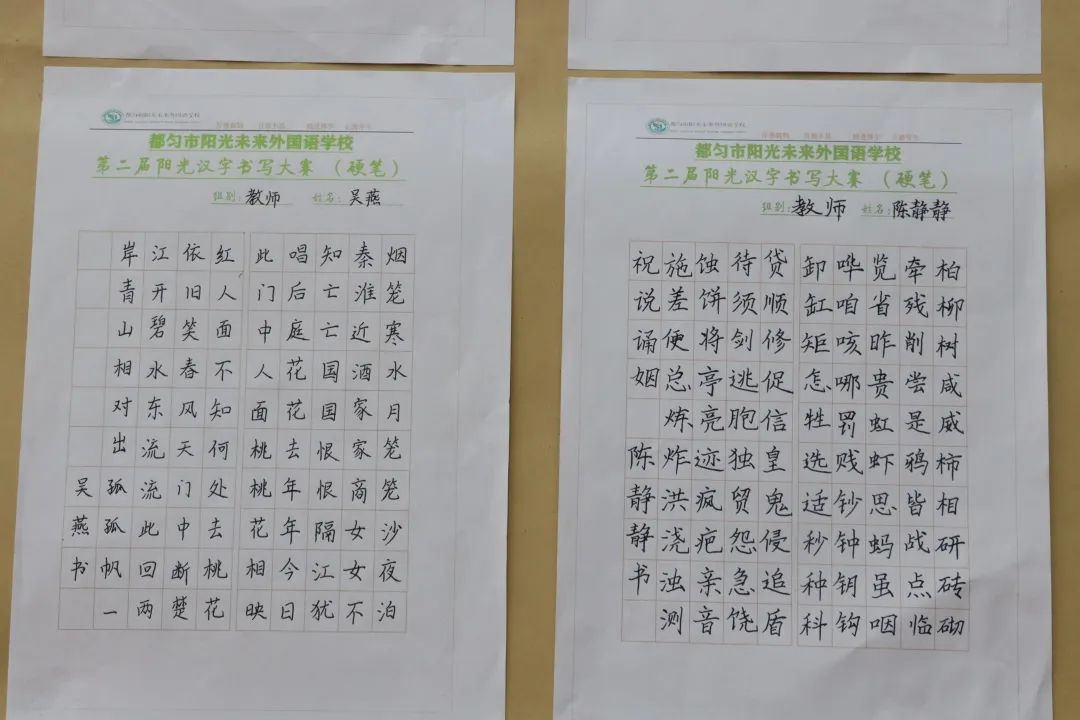 都匀市阳光未来外国语学校
都匀市阳光未来外国语学校
第二届阳光汉字书写大赛(硬笔)
组别:教师 姓名:吴燕
烟笼寒水月笼笼沙夜泊
秦淮近酒家家商女女不
知亡亡国国恨恨隔江犹
唱后庭花花去年年今日
此门中人面桃桃花相映
红人面不知何处去桃花
依旧笑春风天门中断楚
江开碧水东流流此回两
岸青山相对出孤孤帆一
吴燕书
都匀市阳光未来外国语学校
都匀市阳光未来外国语学校
第二届阳光汉字书写大赛(硬笔)
组别:教师 姓名:陈静静
柏柳树咸威柿相研砖砌
牵残削尝是鸦皆战点临
览省昨贵虹虾思蚂虽咽
哗咱咳哪罚贱钞钟钥钩
卸缸矩怎牲选适秒种科
贷顺修促信皇鬼侵追盾
待须剑逃胞独贸怨急饶
蚀饼将亭亮迹疯疤亲音
施差便总炼炸洪浇浊测
祝说诵姻 陈静静书